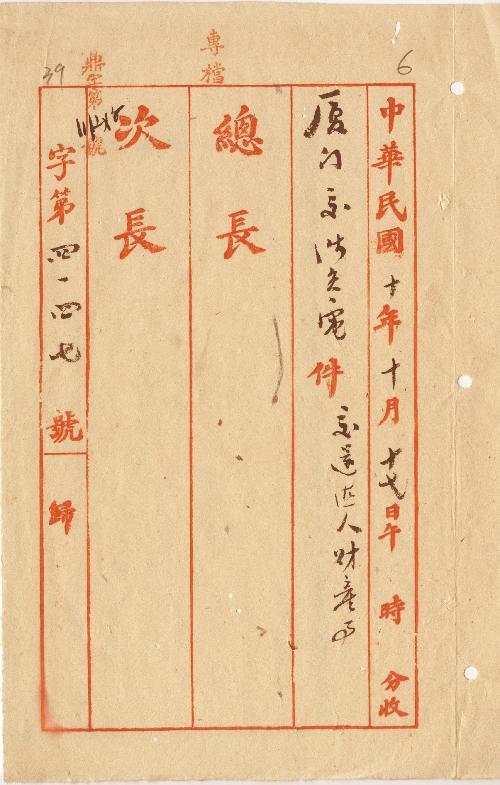 6
39
專檔
中華民國十年十月十七日午 時 分收
厦门交涉員電 件 交還德人財產事
總長
次長
字第四一四七號 歸